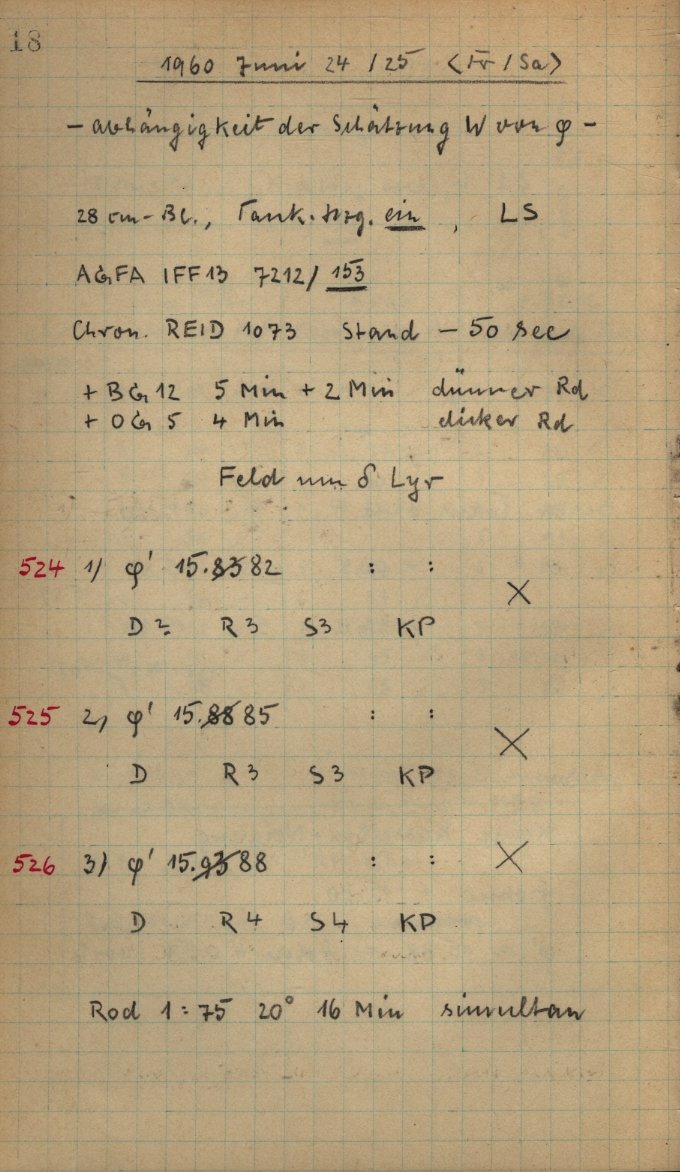 18
1960 Juni 24 / 25 (Fr / Sa)
- Abhängigkeit der Schätzung W von φ -
28 cm - Bl., Tank. Hzg. ein, LS
AGFA IFF 13 7212 / 153
Chron. REID 1073 Stand - 50 sec
+ BG 12 5 Min + 2 Min dünner Rd
+ OG 5 4 Min dicker Rd
Feld um δ Lyr
524 1) φ' 15.83 82 : : X
D 2 R 3 S 3 KP
525 2) φ' 15.88 85 : : X
D R 3 S 3 KP
526 3) φ' 15.93 88 : : X
D R 4 S 4 KP
Rod 1:75 20° 16 Min simultan